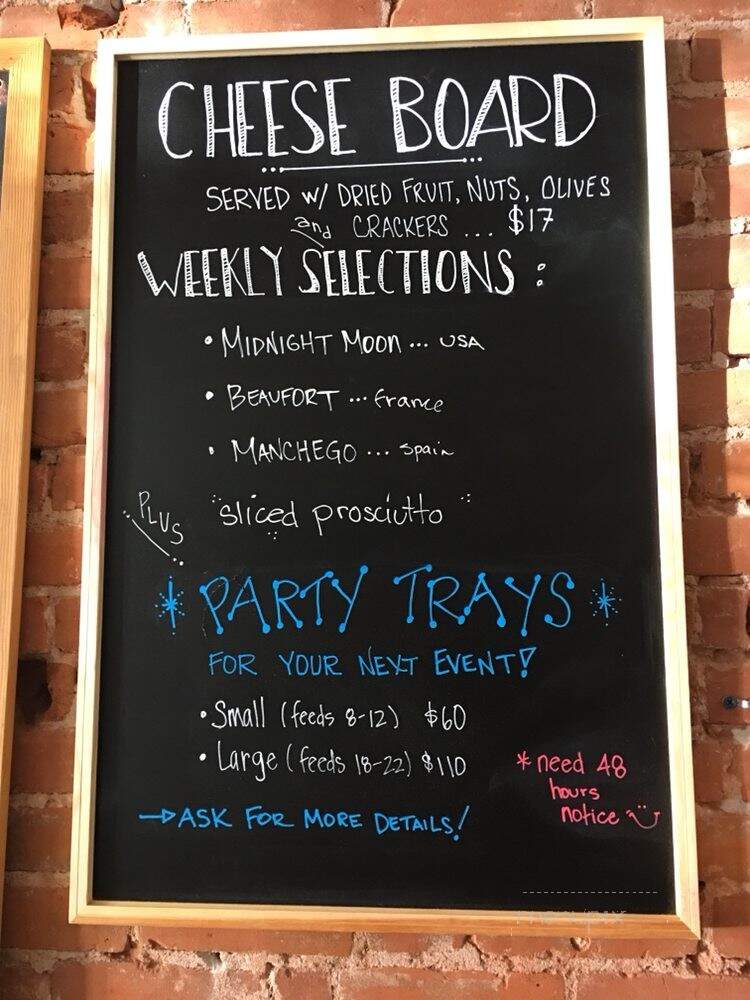 CHEESE BOARD
SERVED W/ DRIED FRUIT, NUTS, OLIVES
and CRACKERS ... $17
WEEKLY SELECTIONS :
• MIDNIGHT MOON ... USA
• BEAUFORT ... france
• MANCHEGO ... spain
PLUS sliced prosciutto
* PARTY TRAYS *
FOR YOUR NEXT EVENT!
• Small (feeds 8-12) $60
• Large (feeds 18-22) $110
* need 48
hours
notice
→ ASK FOR MORE DETAILS!